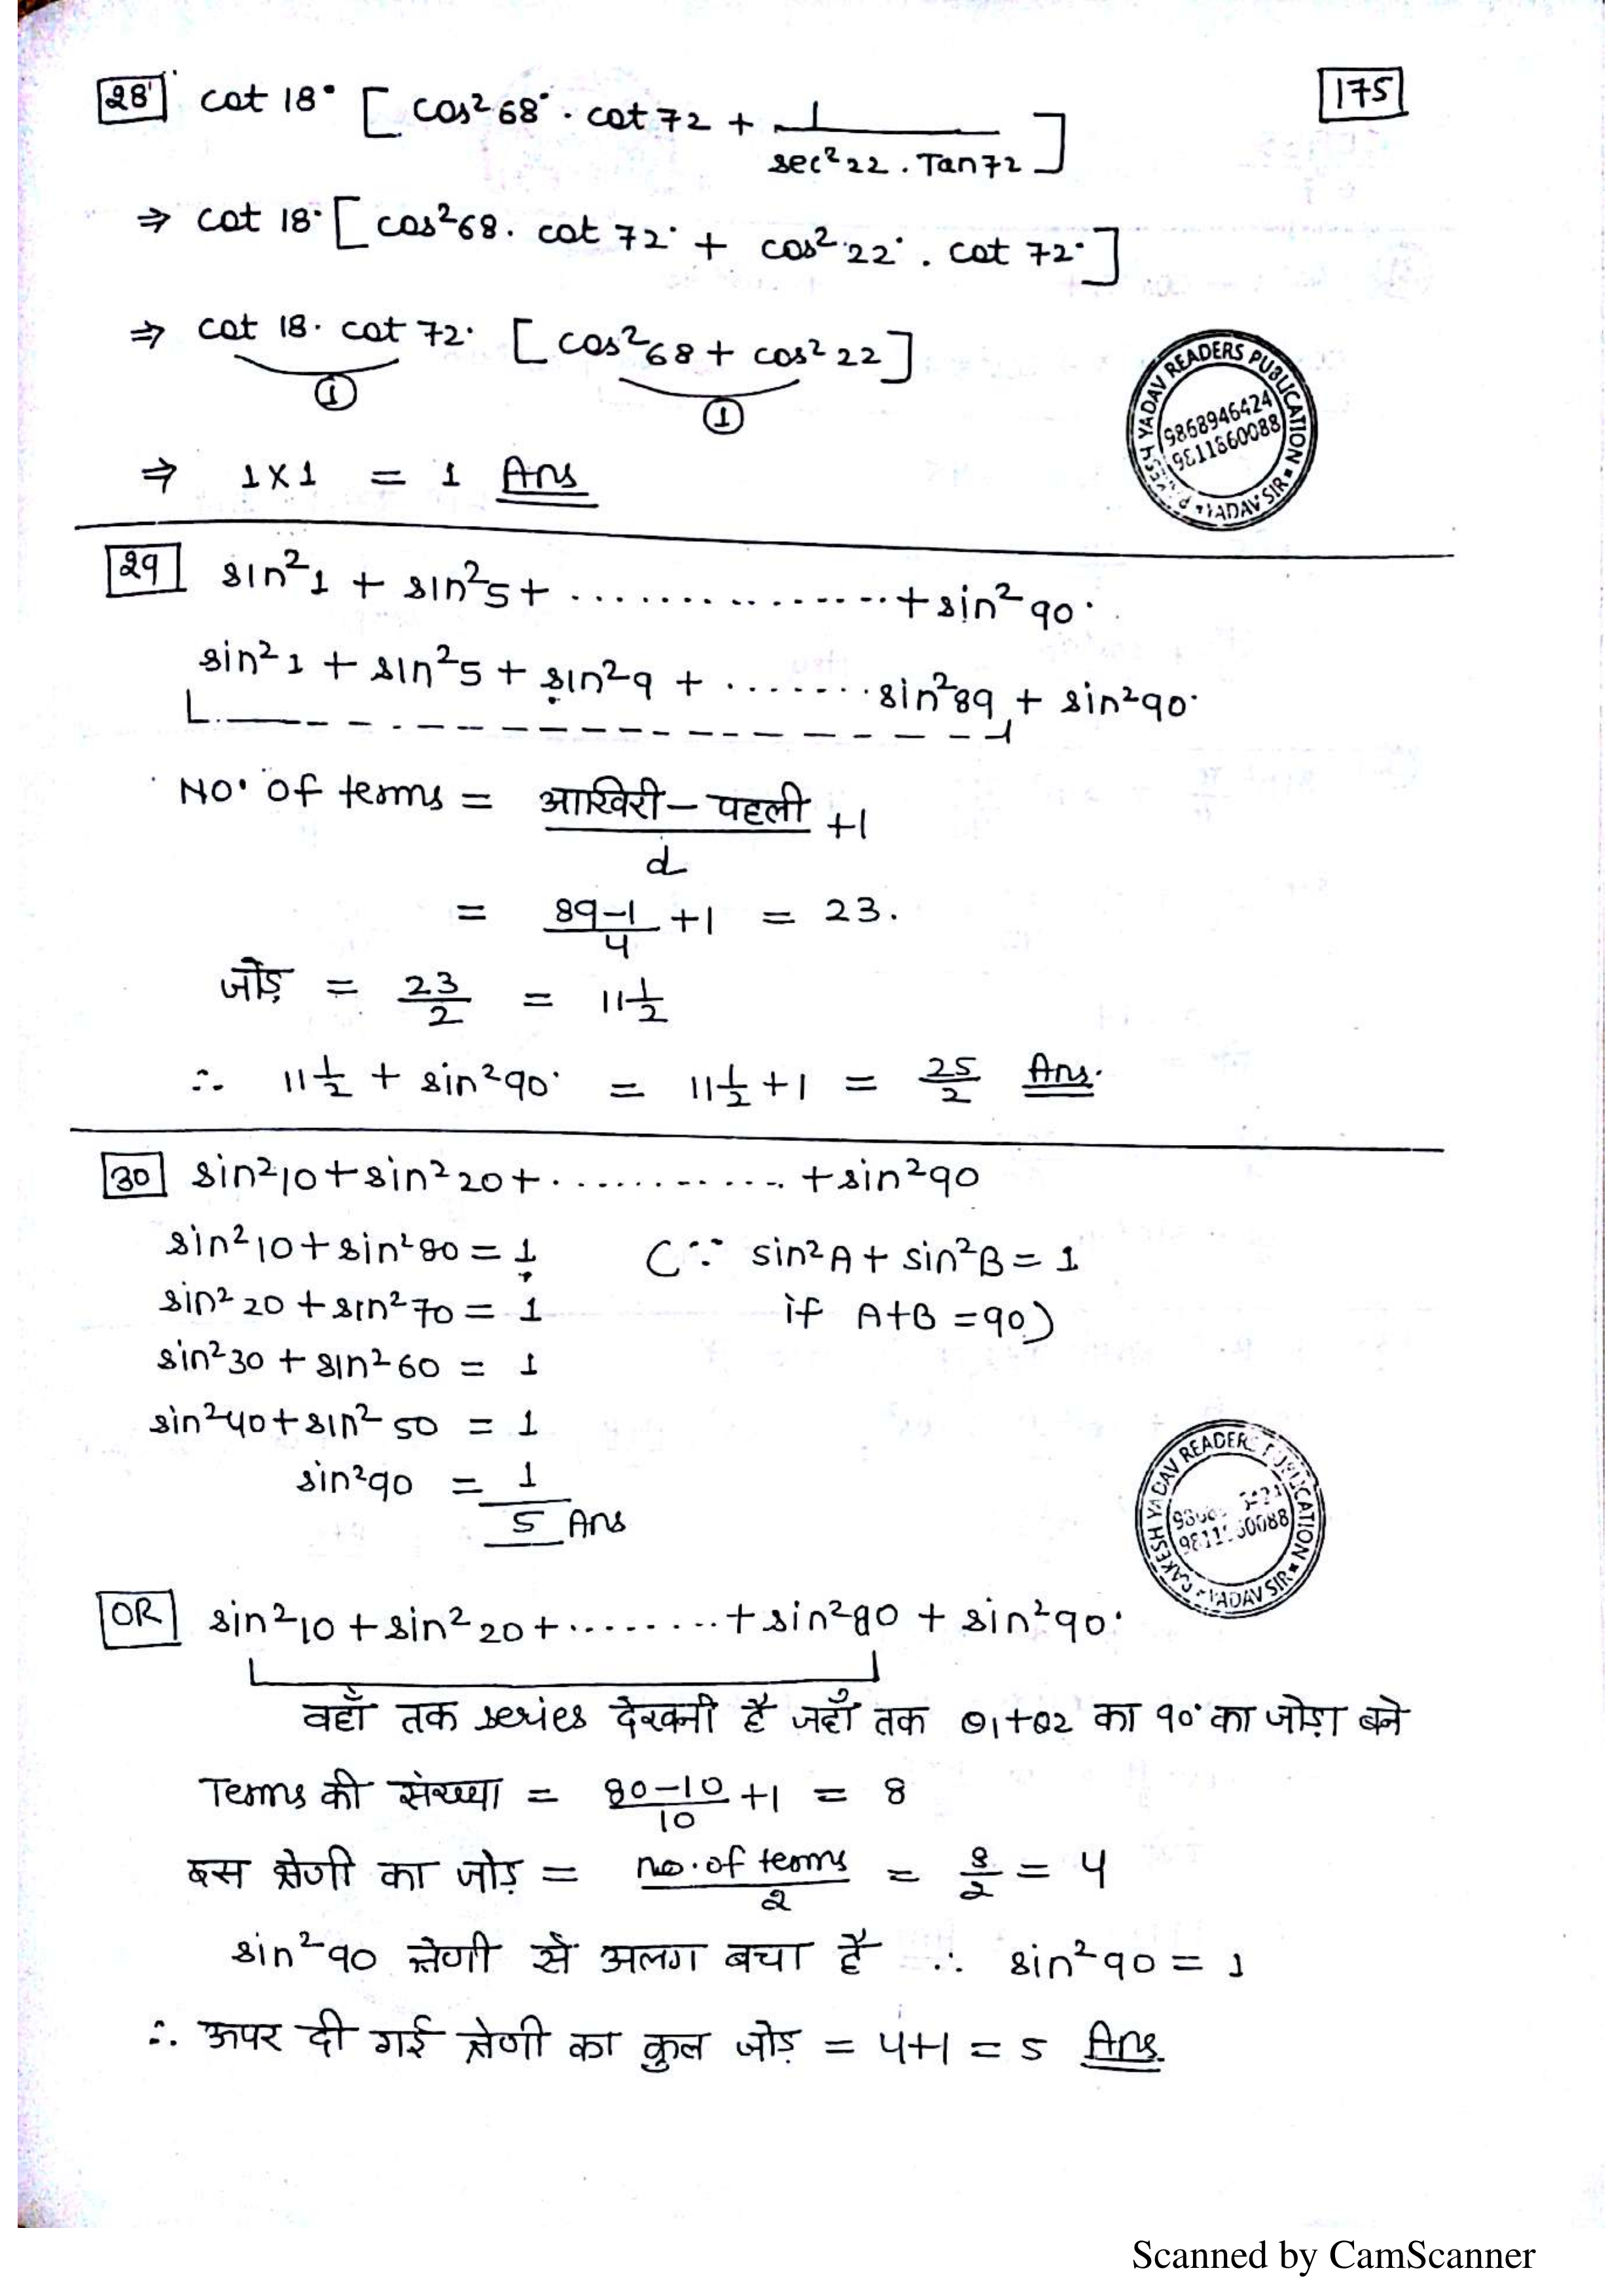 28 cot 18° [ cos²68° . cot 72 + 1/(sec²22 . Tan72) ]
175
⇒ cot 18° [ cos²68 . cot 72° + cos²22° . cot 72° ]
⇒ cot 18 . cot 72° [ cos²68 + cos²22 ]
① ①
⇒ 1×1 = 1 Ans
YADAV READERS PUBLICATION
9868946424
9811860088
YADAV SIR
29 sin²1 + sin²5 + ................ + sin²90°
sin²1 + sin²5 + sin²9 + ........ sin²89 + sin²90°
No. of terms = (आखिरी – पहली)/d + 1
= (89–1)/4 + 1 = 23.
जोड़ = 23/2 = 11½
∴ 11½ + sin²90° = 11½ + 1 = 25/2 Ans.
30 sin²10 + sin²20 + ............ + sin²90
sin²10 + sin²80 = 1 (∵ sin²A + sin²B = 1
sin²20 + sin²70 = 1 if A+B = 90)
sin²30 + sin²60 = 1
sin²40 + sin²50 = 1
sin²90 = 1
5 Ans
RAKESH YADAV READERS PUBLICATION
YADAV SIR
OR sin²10 + sin²20 + ........ + sin²80 + sin²90°
वहाँ तक series देखनी है जहाँ तक θ1+θ2 का 90° का जोड़ा बने
Terms की संख्या = (80–10)/10 + 1 = 8
इस श्रेणी का जोड़ = no. of terms/2 = 8/2 = 4
sin²90 श्रेणी से अलग बचा है ∴ sin²90 = 1
∴ ऊपर दी गई श्रेणी का कुल जोड़ = 4+1 = 5 Ans.
Scanned by CamScanner